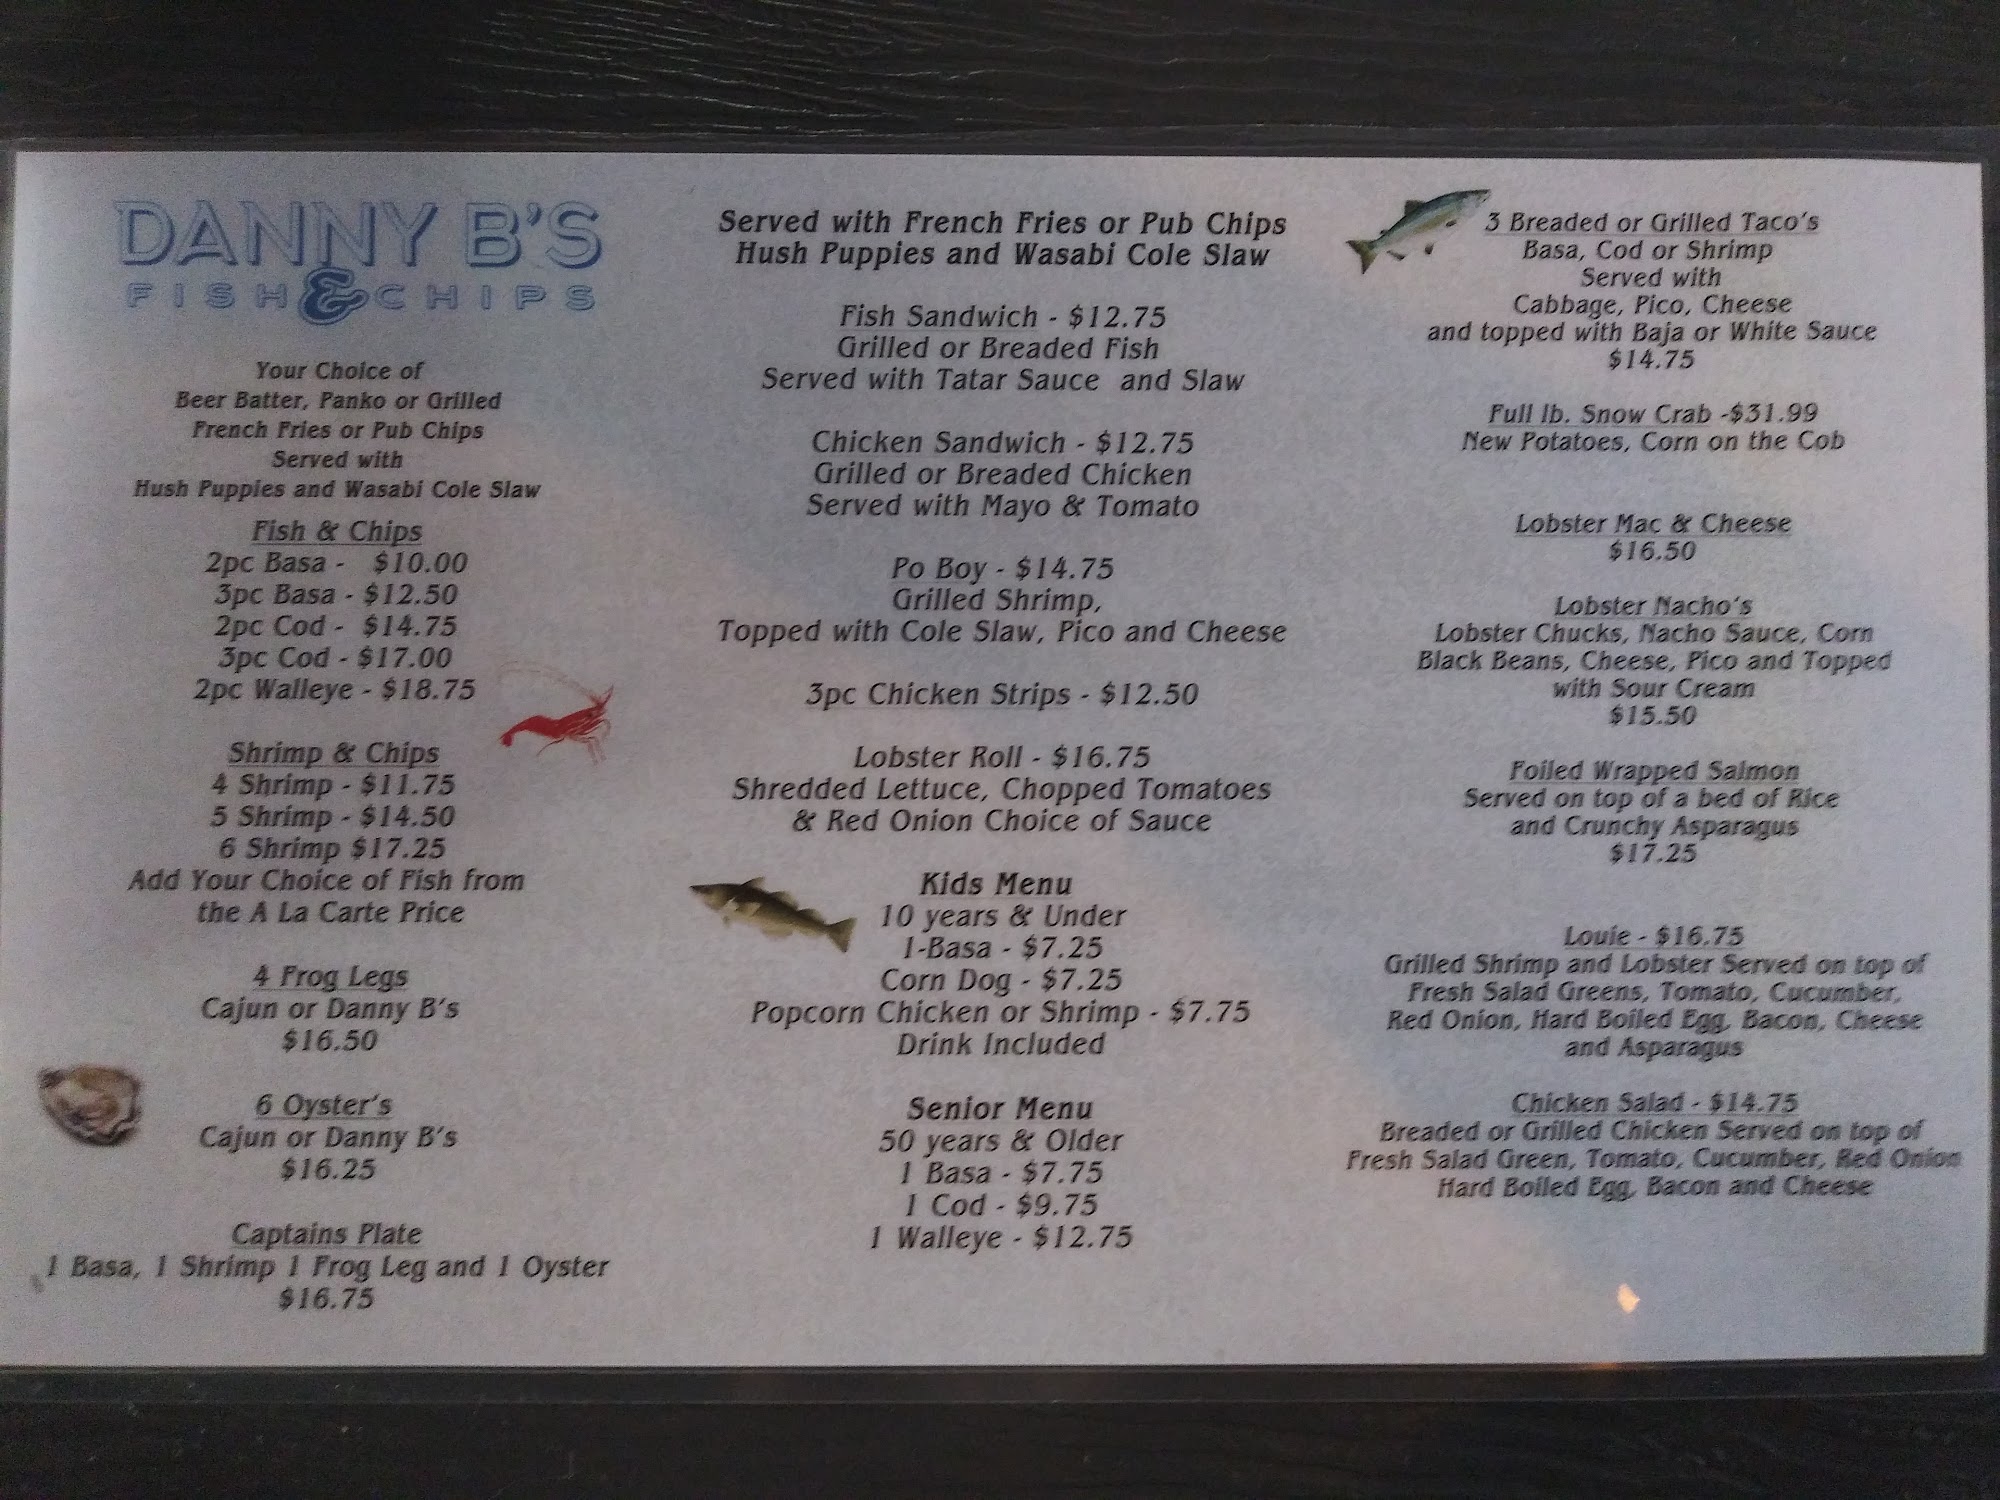 DANNY B'S
FISH & CHIPS
Your Choice of
Beer Batter, Panko or Grilled
French Fries or Pub Chips
Served with
Hush Puppies and Wasabi Cole Slaw
Fish & Chips
2pc Basa - $10.00
3pc Basa - $12.50
2pc Cod - $14.75
3pc Cod - $17.00
2pc Walleye - $18.75
Shrimp & Chips
4 Shrimp - $11.75
5 Shrimp - $14.50
6 Shrimp $17.25
Add Your Choice of Fish from
the A La Carte Price
4 Frog Legs
Cajun or Danny B's
$16.50
6 Oyster's
Cajun or Danny B's
$16.25
Captains Plate
1 Basa, 1 Shrimp 1 Frog Leg and 1 Oyster
$16.75
Served with French Fries or Pub Chips
Hush Puppies and Wasabi Cole Slaw
Fish Sandwich - $12.75
Grilled or Breaded Fish
Served with Tatar Sauce and Slaw
Chicken Sandwich - $12.75
Grilled or Breaded Chicken
Served with Mayo & Tomato
Po Boy - $14.75
Grilled Shrimp,
Topped with Cole Slaw, Pico and Cheese
3pc Chicken Strips - $12.50
Lobster Roll - $16.75
Shredded Lettuce, Chopped Tomatoes
& Red Onion Choice of Sauce
Kids Menu
10 years & Under
1-Basa - $7.25
Corn Dog - $7.25
Popcorn Chicken or Shrimp - $7.75
Drink Included
Senior Menu
50 years & Older
1 Basa - $7.75
1 Cod - $9.75
1 Walleye - $12.75
3 Breaded or Grilled Taco's
Basa, Cod or Shrimp
Served with
Cabbage, Pico, Cheese
and topped with Baja or White Sauce
$14.75
Full lb. Snow Crab -$31.99
New Potatoes, Corn on the Cob
Lobster Mac & Cheese
$16.50
Lobster Nacho's
Lobster Chucks, Nacho Sauce, Corn
Black Beans, Cheese, Pico and Topped
with Sour Cream
$15.50
Foiled Wrapped Salmon
Served on top of a bed of Rice
and Crunchy Asparagus
$17.25
Louie - $16.75
Grilled Shrimp and Lobster Served on top of
Fresh Salad Greens, Tomato, Cucumber,
Red Onion, Hard Boiled Egg, Bacon, Cheese
and Asparagus
Chicken Salad - $14.75
Breaded or Grilled Chicken Served on top of
Fresh Salad Green, Tomato, Cucumber, Red Onion
Hard Boiled Egg, Bacon and Cheese